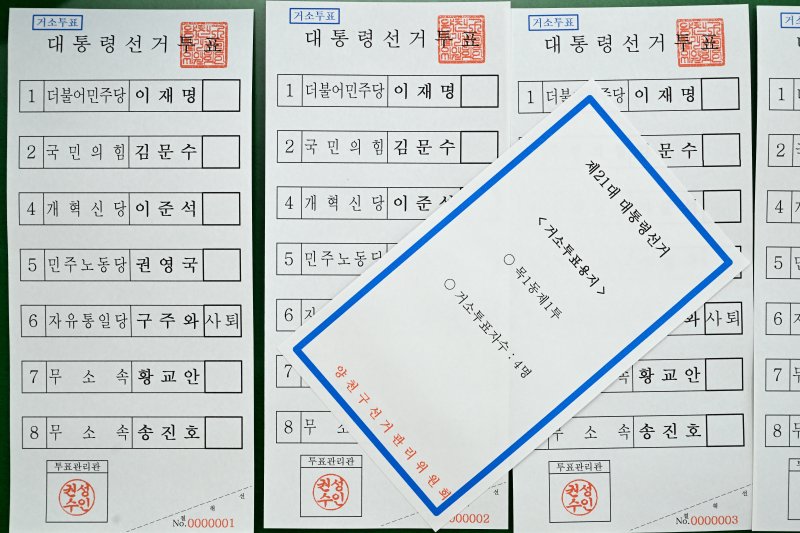 거소투표
대통령선거투표
1 더불어민주당 이재명
2 국민의힘 김문수
4 개혁신당 이준석
5 민주노동당 권영국
6 자유통일당 구주와 사퇴
7 무소속 황교안
8 무소속 송진호
투표관리관
권성수인
절취선
No.0000001
거소투표
대통령선거투표
1 더불어민주당 이재명
2 국민의힘 김문수
4 개혁신당 이준석
5 민주노동당
6 자
7 무
8 무소
투표관리관
권성수인
0000002
제21대 대통령선거
< 거소투표용지 >
○ 목1동제1투
○ 거소투표자수 : 4명
양천구선거관리위원회
거소투표
대통령선거투표
1 더불 당 이재명
문수
와 사퇴
속 황교안
무소속 송진호
투표관리관
권성수인
절취선
No.0000003
거소투
1
2
4 개
5 민
6 자
7 무
8 무